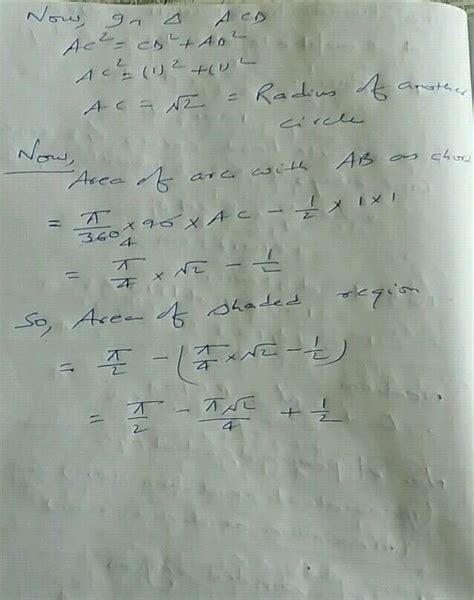 Now, In Δ ACD
AC² = CD² + AD²
AC² = (1)² + (1)²
AC = √2 = Radius of another
circle
Now,
Area of arc with AB as chor
= π/360 × 90 × AC - 1/2 × 1 × 1
4
= π/4 × √2 - 1/2
So, Area of shaded region
= π/2 - (π/4 × √2 - 1/2)
= π/2 - π√2/4 + 1/2